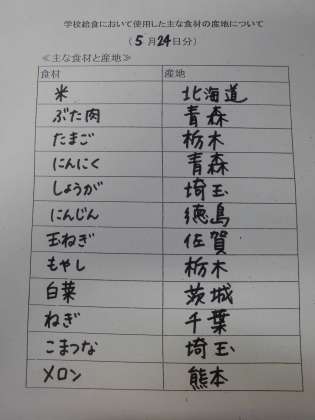 学校給食において使用した主な食材の産地について
(5月24日分)
≪主な食材と産地≫
食材 産地
米 北海道
ぶた肉 青森
たまご 栃木
にんにく 青森
しょうが 埼玉
にんじん 徳島
玉ねぎ 佐賀
もやし 栃木
白菜 茨城
ねぎ 千葉
こまつな 埼玉
メロン 熊本